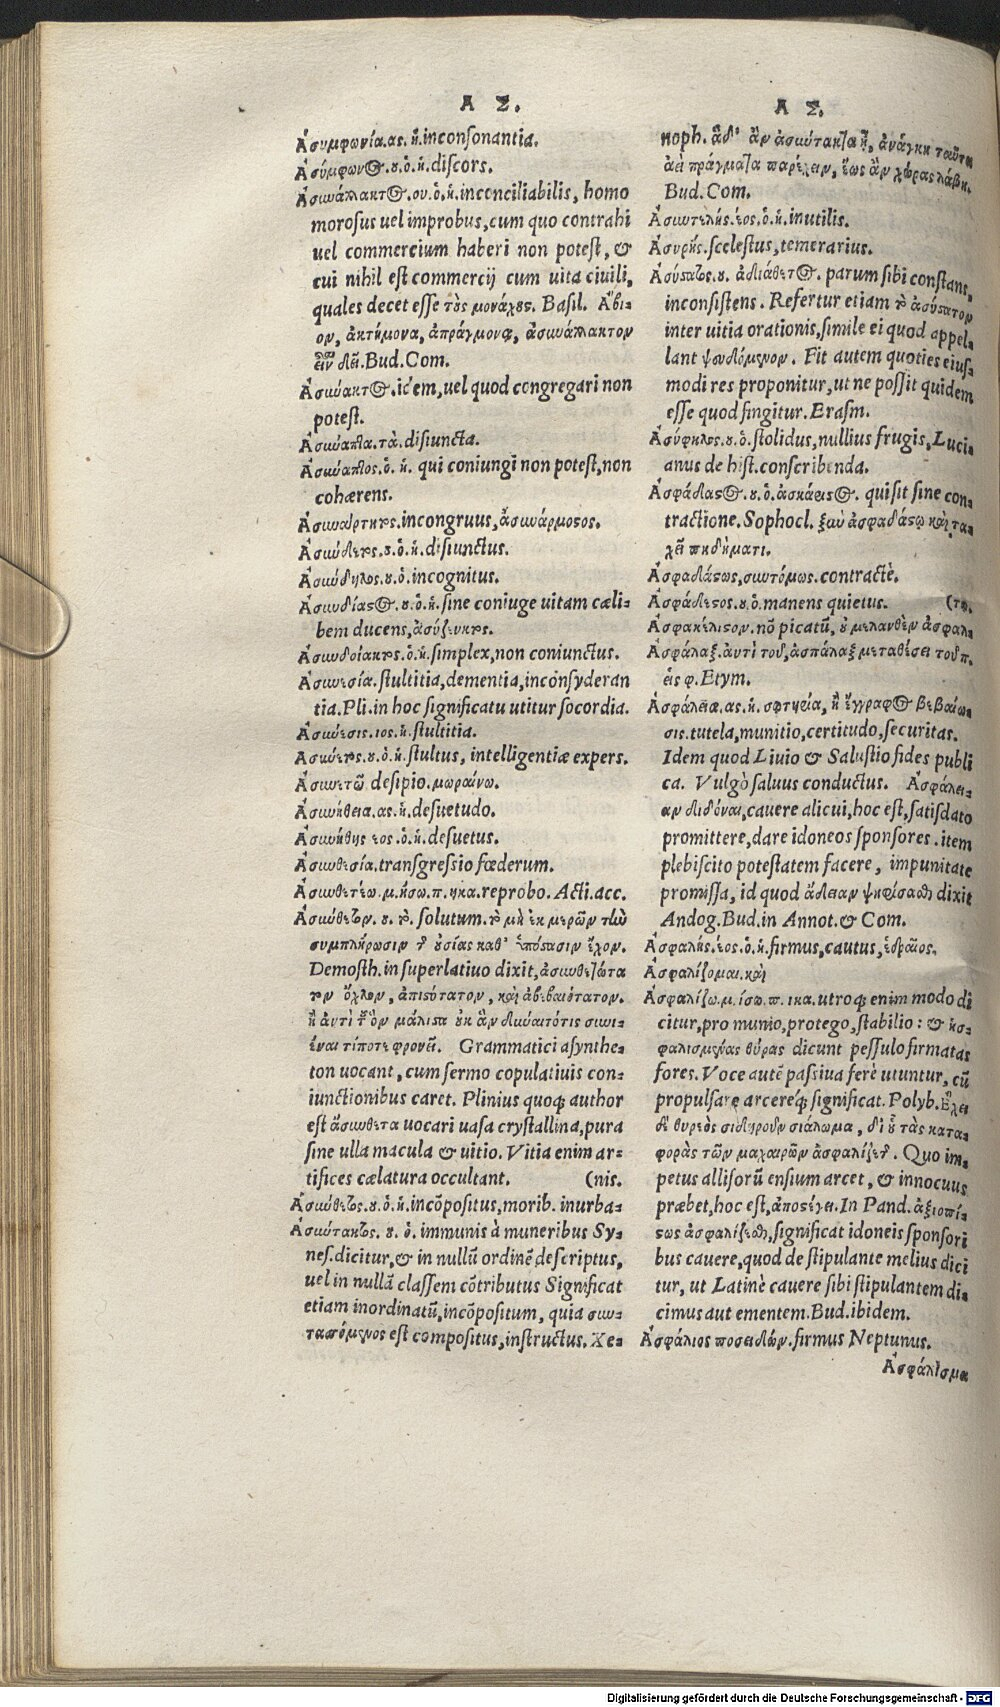 Α Σ.
Ἀσυμφωνία.ας.ἡ.inconſonantia.
Ἀσύμφωνος.ου.ὁ.ἡ.diſcors.
Ἀσυνάλλακτος.ου.ὁ.ἡ.inconciliabilis, homo
moroſus uel improbus, cum quo contrahi
uel commercium haberi non poteſt, &
cui nihil eſt commercij cum uita ciuili,
quales decet eſſe τοὺς μονάχους. Baſil. Ἄβι-
ον, ἀκτήμονα, ἀπράγμονα, ἀσυνάλλακτον
εἶναι δεῖ. Bud. Com.
Ἀσύνακτος.idem, uel quod congregari non
poteſt.
Ἀσύναπτα.τὰ.diſiuncta.
Ἀσύναπτος.ὁ.ἡ. qui coniungi non poteſt, non
cohærens.
Ἀσυνάρτητος.incongruus, ἀσυνάρμοσος.
Ἀσύνδετος.ου.ὁ.ἡ.diſiunctus.
Ἀσύνδηλος.ου.ὁ.incognitus.
Ἀσυνδίαστος.ου.ὁ.ἡ.ſine coniuge uitam cæli-
bem ducens, ἀσύζευκτος.
Ἀσυνδοίαστος.ὁ.ἡ.ſimplex, non coniunctus.
Ἀσυνεσία.ſtultitia, dementia, inconſyderan
tia. Pli. in hoc ſignificatu utitur ſocordia.
Ἀσύνεσις.ιος.ἡ.ſtultitia.
Ἀσύνετος.ου.ὁ.ἡ.ſtultus, intelligentiæ expers.
Ἀσυνετῶ deſipio. μωραίνω.
Ἀσυνήθεια.ας.ἡ.deſuetudo.
Ἀσυνήθης εος.ὁ.ἡ.deſuetus.
Ἀσυνθεσία.tranſgreſſio fœderum.
Ἀσυνθετέω.μ.ήσω.π.ηκα.reprobo. Acti. acc.
Ἀσύνθετον.ου.τὸ. ſolutum. τὸ μὴ ἐκ μερῶν τὴν
συμπλήρωσιν τῆς οὐσίας καθ' ὑπόστασιν ἔχον.
Demoſth. in ſuperlatiuo dixit, ἀσυνθετώτα
τον ὄχλον, ἀπιστότατον, καὶ ἀβεβαιότατον.
ἢ ἀντὶ τοῦ ὃν μάλιστα οὐκ ἂν δύναιτό τις συνι-
έναι τί ποτε φρονεῖ. Grammatici aſynthe-
ton uocant, cum ſermo copulatiuis con-
iunctionibus caret. Plinius quoq; author
eſt ἀσύνθετα uocari uaſa cryſtallina, pura
ſine ulla macula & uitio. Vitia enim ar-
tifices cælatura occultant. (nis.
Ἀσύνθετος.ου.ὁ.ἡ.incōpoſitus, morib. inurba-
Ἀσύντακτος.ου.ὁ. immunis à muneribus Sy-
neſ. dicitur, & in nullū ordinē deſcriptus,
uel in nullā claſſem cōtributus Significat
etiam inordinatū, incōpoſitum, quia συν-
τασσόμενος eſt compoſitus, inſtructus. Xe-
Α Σ.
noph. ἃ δ' ἂν ἀσύντακτα ᾖ, ἀνάγκη ταῦτα
ἀεὶ πράγματα παρέχειν, ἕως ἂν χώρας λάβῃ.
Bud. Com.
Ἀσυντελής.έος.ὁ.ἡ.inutilis.
Ἀσυρής.ſceleſtus, temerarius.
Ἀσύστατος.ου. ἀδιάθετος. parum ſibi conſtans,
inconſiſtens. Refertur etiam τὸ ἀσύστατον
inter uitia orationis, ſimile ei quod appel-
lant ψευδόμενον. Fit autem quoties eiuſ-
modi res proponitur, ut ne poſſit quidem
eſſe quod fingitur. Eraſm.
Ἀσύφηλος.ου.ὁ.ſtolidus, nullius frugis, Luci-
anus de hiſt. conſcribenda.
Ἀσφάδαστος.ου.ὁ.ἀσκάριστος. qui ſit ſine con-
tractione. Sophocl. ξὺν ἀσφαδάστῳ καὶ τα-
χεῖ πηδήματι.
Ἀσφαδάστως, συντόμως. contractè.
Ἀσφάδεστος.ου.ὁ.manens quietus. (τον.
Ἀσφακέλιστον. nō picatū, οὐ μελανθὲν ἀσφαλ-
Ἀσφάλαξ. ἀντὶ τοῦ, ἀσπάλαξ μεταθέσει τοῦ π.
εἰς φ. Etym.
Ἀσφάλεια.ας.ἡ. σωτηρία, ἢ ἔγγραφος βεβαίω-
σις. tutela, munitio, certitudo, ſecuritas.
Idem quod Liuio & Saluſtio fides publi
ca. Vulgò ſaluus conductus. Ἀσφάλει-
αν διδόναι, cauere alicui, hoc eſt, ſatiſdato
promittere, dare idoneos ſponſores. item
plebiſcito poteſtatem facere, impunitate
promiſſa, id quod ἄδειαν ψηφίσασθαι dixit
Andog. Bud. in Annot. & Com.
Ἀσφαλής.έος.ὁ.ἡ.firmus, cautus, ἑδραῖος.
Ἀσφαλίζομαι. καὶ
Ἀσφαλίζω.μ.ίσω.π.ικα. utroq; enim modo di
citur, pro munio, protego, ſtabilio: & ἠσ-
φαλισμένας θύρας dicunt peſſulo firmatas
fores. Voce autē paſſiua ferè utuntur, cū
propulſare arcereq́; ſignificat. Polyb. Ἔχει
δὲ θυρεὸς σιδηροῦν σιάλωμα, δι' οὗ τὰς κατα-
φορὰς τῶν μαχαιρῶν ἀσφαλίζεται. Quo im-
petus alliſorū enſium arcet, & innocuus
præbet, hoc eſt, ἀποστέγει. In Pand. ἀξιοπί-
στως ἀσφαλίζεσθαι, ſignificat idoneis ſponſori
bus cauere, quod de ſtipulante melius dici
tur, ut Latinè cauere ſibi ſtipulantem di-
cimus aut ementem. Bud. ibidem.
Ἀσφάλιος ποσειδῶν. firmus Neptunus.
Ἀσφάλισμα
Digitalisierung gefördert durch die Deutsche Forschungsgemeinschaft - DFG